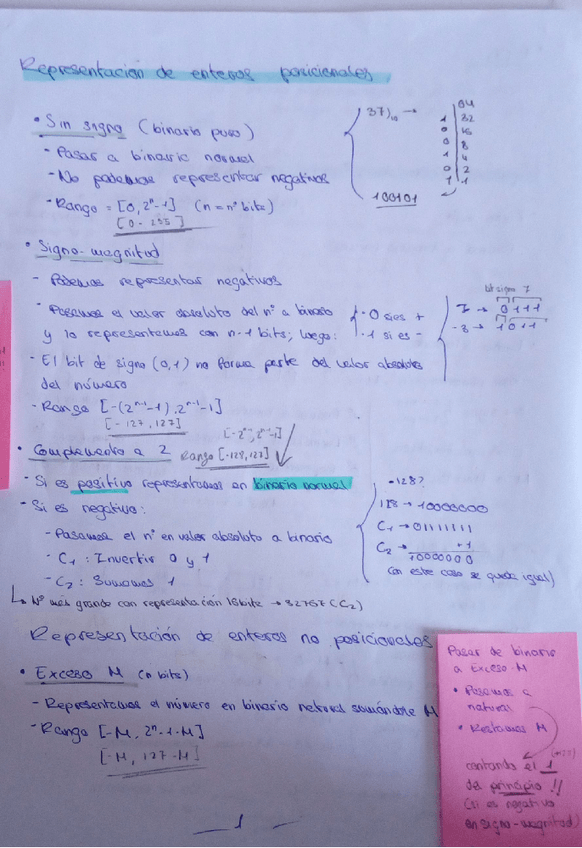 Representación de enteros posicionales
• Sin signo (binario puro)
- Pasar a binario normal
- No podemos representar negativos
- Rango = [0, 2ⁿ-1] (n = nº bits)
[0 - 255]
37)₁₀ →
64
1 32
0 16
0 8
1 4
0 2
1 1
100101
• Signo-magnitud
- Podemos representar negativos
- Pasamos el valor absoluto del nº a binario
y lo representamos con n-1 bits; luego:
- 0 si es +
- 1 si es -
bit signo 7
7 → 0111
-3 → 1011
- El bit de signo (0,1) no forma parte del valor absoluto
del número
- Rango [-(2ⁿ⁻¹-1), 2ⁿ⁻¹-1]
[-127, 127]
• Complemento a 2 Rango [-128, 127]
[-2ⁿ⁻¹, 2ⁿ⁻¹-1]
- Si es positivo representamos en binario normal
- Si es negativo:
- Pasamos el nº en valor absoluto a binario
- C₁: Invertir 0 y 1
- C₂: Sumamos 1
-128?
128 → 10000000
C₁ → 01111111
C₂ → +1
10000000
(en este caso se queda igual)
↳ Nº más grande con representación 16bits → 32767 (C₂)
Representación de enteros no posicionales
• Exceso M (n bits)
- Representamos el número en binario natural sumándole M
- Rango [-M, 2ⁿ-1-M]
[-M, 127-M]
Pasar de binario
a Exceso-M
• Pasamos a
natural
• Restamos M
contando el 1
del principio!!
(si es negativo
en signo-magnitud)
1